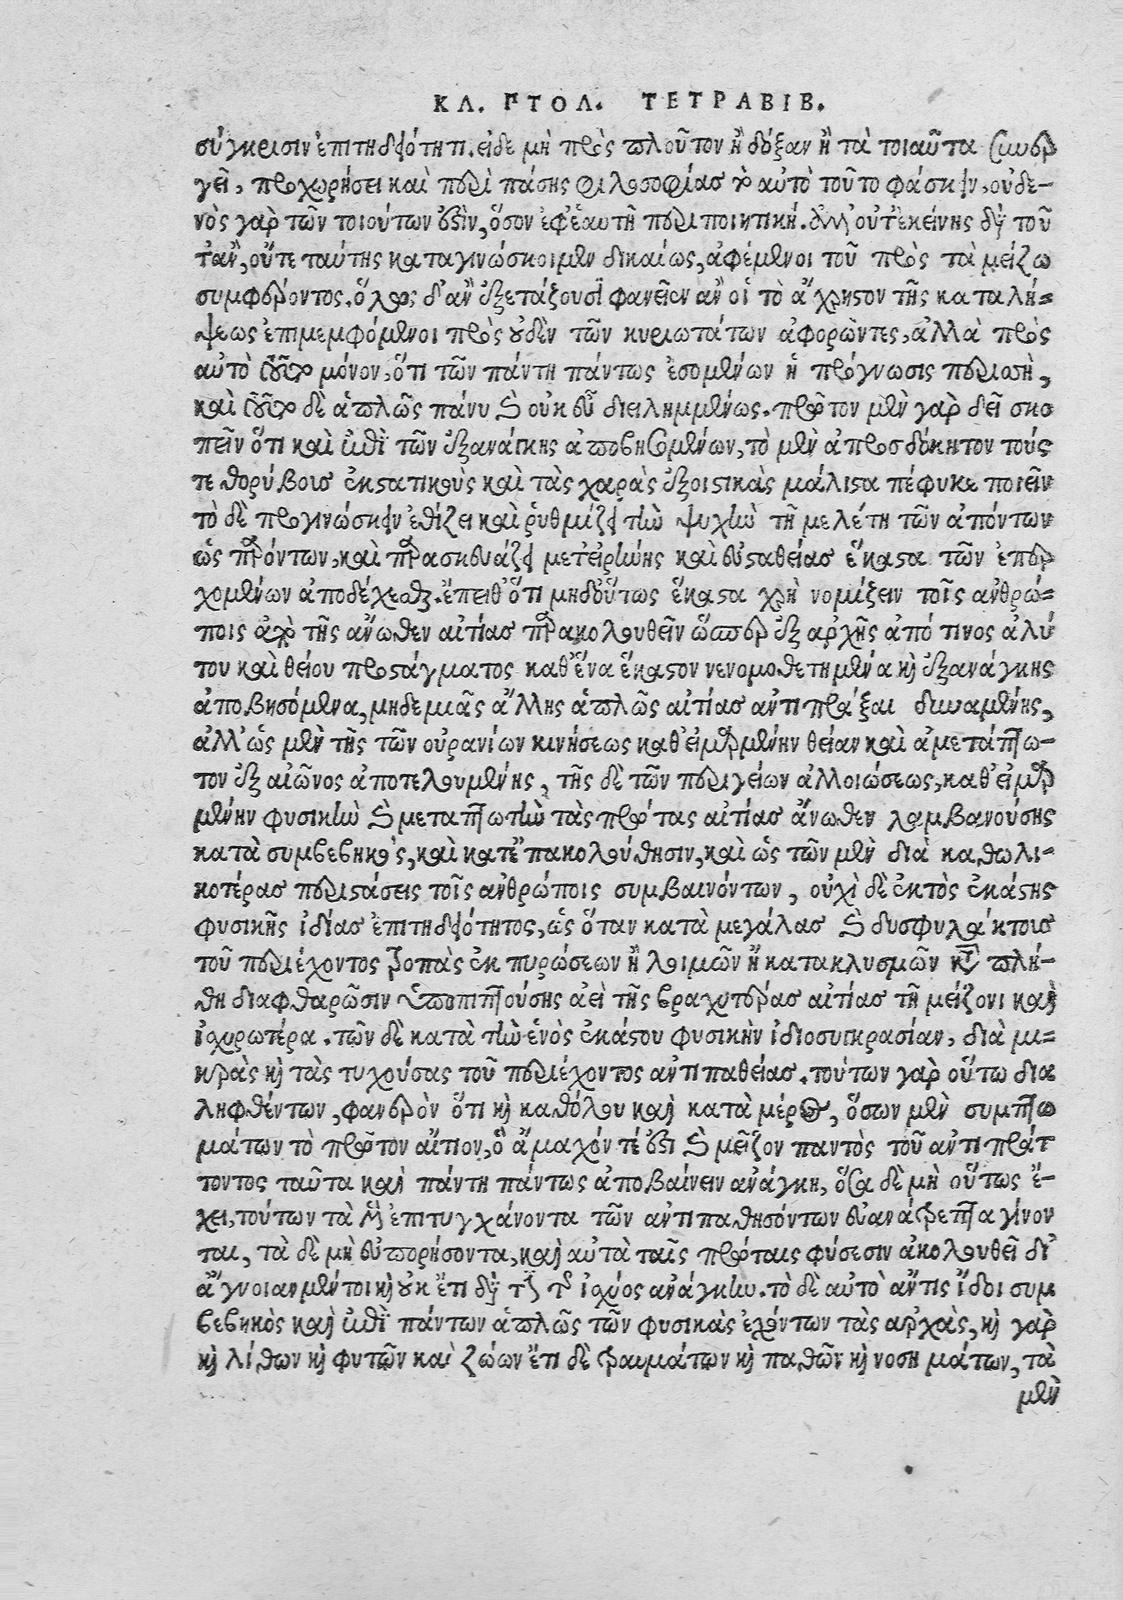 ΚΛ. ΠΤΟΛ. ΤΕΤΡΑΒΙΒ.
σύγκρισιν ἐπιτηδειότητι. εἰδε μὴ πρὸς πλοῦτον ἢ δόξαν ἢ τὰ τοιαῦτα συνερ
γεῖ, προχωρήσει καὶ περὶ πάσης φιλοσοφίας τὸ αὐτὸ τοῦτο φάσκειν, οὐδε-
νὸς γὰρ τῶν τοιούτων ἐστὶν, ὅσον ἐφ' ἑαυτῇ περιποιητική. ἀλλ' οὔτ' ἐκείνης διὰ τοῦ
τ' ἂν, οὔτε ταύτης καταγινώσκοιμεν δικαίως, ἀφέμενοι τοῦ πρὸς τὰ μείζω
συμφέροντος. ὅλως δ' ἂν ἐξετάζουσι φανεῖεν ἂν οἱ τὸ ἄχρηστον τῆς καταλή-
ψεως ἐπιμεμφόμενοι πρὸς οὐδὲν τῶν κυριωτάτων ἀφορῶντες, ἀλλὰ πρὸς
αὐτὸ τοῦτο μόνον, ὅτι τῶν πάντη πάντως ἐσομένων ἡ πρόγνωσις περισσὴ,
καὶ τοῦτο δὲ ἁπλῶς πάνυ καὶ οὐκ εὖ διειλημμένως. πρῶτον μὲν γὰρ δεῖ σκο
πεῖν ὅτι καὶ ἐπὶ τῶν ἐξανάγκης ἀποβησομένων, τὸ μὲν ἀπροσδόκητον τούς
τε θορύβους ἐκστατικοὺς καὶ τὰς χαρὰς ἐξοιστικὰς μάλιστα πέφυκε ποιεῖν
τὸ δὲ προγινώσκειν ἐθίζει καὶ ῥυθμίζει τὴν ψυχὴν τῇ μελέτῃ τῶν ἀπόντων
ὡς παρόντων, καὶ παρασκευάζει μετ' εἰρήνης καὶ εὐσταθείας ἕκαστα τῶν ἐπερ
χομένων ἀποδέχεσθαι. ἔπειθ' ὅτι μηδ' οὕτως ἕκαστα χρὴ νομίζειν τοῖς ἀνθρώ-
ποις ἀπὸ τῆς ἄνωθεν αἰτίας παρακολουθεῖν ὥσπερ ἐξ ἀρχῆς ἀπό τινος ἀλύ
του καὶ θείου προστάγματος καθ' ἕνα ἕκαστον νενομοθετημένα καὶ ἐξανάγκης
ἀποβησόμενα, μηδεμιᾶς ἄλλης ἁπλῶς αἰτίας ἀντιπρᾶξαι δυναμένης,
ἀλλ' ὡς μὲν τῆς τῶν οὐρανίων κινήσεως καθ' εἱμαρμένην θείαν καὶ ἀμετάπτω-
τον ἐξ αἰῶνος ἀποτελουμένης, τῆς δὲ τῶν περιγείων ἀλλοιώσεως, καθ' εἱμαρ
μένην φυσικὴν καὶ μεταπτωτὴν τὰς πρώτας αἰτίας ἄνωθεν λαμβανούσης
κατὰ συμβεβηκὸς, καὶ κατ' ἐπακολούθησιν, καὶ ὡς τῶν μὲν διὰ καθολι-
κοτέρας περιστάσεις τοῖς ἀνθρώποις συμβαινόντων, οὐχὶ δὲ ἐκτὸς ἑκάστης
φυσικῆς ἰδίας ἐπιτηδειότητος, ὡς ὅταν κατὰ μεγάλας καὶ δυσφυλάκτους
τοῦ περιέχοντος τροπὰς ἐκ πυρώσεων ἢ λοιμῶν ἢ κατακλυσμῶν κατὰ πλή-
θη διαφθαρῶσιν ὑποπιπτούσης ἀεὶ τῆς βραχυτέρας αἰτίας τῇ μείζονι καὶ
ἰσχυρωτέρᾳ. τῶν δὲ κατὰ τὴν ἑνὸς ἑκάστου φυσικὴν ἰδιοσυγκρασίαν, διὰ μι-
κρὰς καὶ τὰς τυχούσας τοῦ περιέχοντος ἀντιπαθείας. τούτων γὰρ οὕτω δια
ληφθέντων, φανερὸν ὅτι καὶ καθόλου καὶ κατὰ μέρος, ὅσων μὲν συμπτω
μάτων τὸ πρῶτον αἴτιον, ὃ ἄμαχόν τέ ἐστι καὶ μεῖζον παντὸς τοῦ ἀντιπράτ
τοντος ταῦτα καὶ πάντη πάντως ἀποβαίνειν ἀνάγκη, ὅσα δὲ μὴ οὕτως ἔ-
χει, τούτων τὰ μὲν ἐπιτυγχάνοντα τῶν ἀντιπαθησόντων εὐανάτρεπτα γίνον
ται, τὰ δὲ μὴ εὐπορήσοντα, καὶ αὐτὰ ταῖς πρώταις φύσεσιν ἀκολουθεῖ δι'
ἄγνοιαν μέντοι καὶ οὐκ ἔτι διὰ τὴν τῆς ἰσχύος ἀνάγκην. τὸ δὲ αὐτὸ ἄν τις ἴδοι συμ
βεβηκὸς καὶ ἐπὶ πάντων ἁπλῶς τῶν φυσικὰς ἐχόντων τὰς ἀρχάς, καὶ γὰρ
καὶ λίθων καὶ φυτῶν καὶ ζώων ἔτι δὲ τραυμάτων καὶ παθῶν καὶ νοσημάτων, τὰ
μὲν